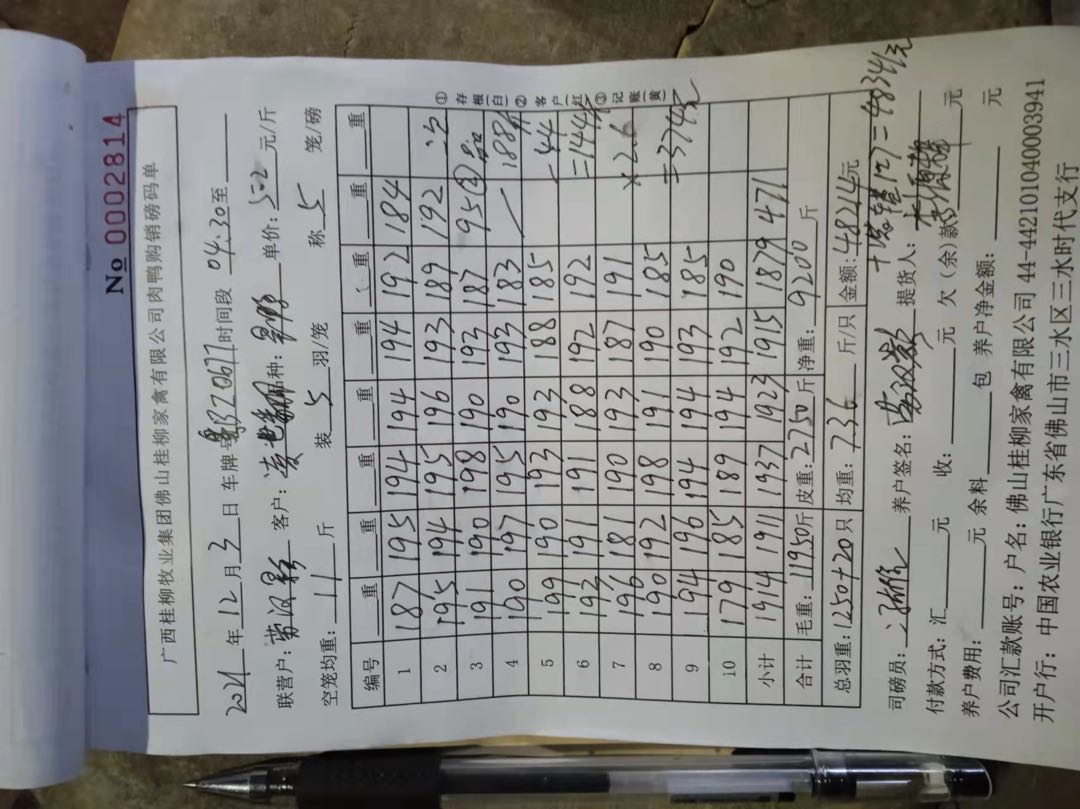 广西桂柳牧业集团佛山桂柳家禽有限公司肉鸭购销磅码单
No 0002814
2021年12月3日 车牌号 粤B20677 时间段 04:30至
联营户: 客户: 品种: 单价: 5.02 元/斤
空笼均重: 11 斤 装 5 羽/笼 称 5 笼/磅
编号 重 重 重 重 重 重 重 重
1 187 195 194 194 194 192 184
2 195 194 195 196 193 189 192 二次
3 191 190 198 190 193 187 95②
4 190 197 195 190 193 183 188斤
5 199 190 193 193 188 185 -44
6 192 191 191 188 192 192 =144斤
7 196 181 190 193 187 191 ×2.6
8 190 192 198 191 190 185 =374元
9 194 196 194 194 193 185
10 179 185 189 194 192 190
小计 1914 1911 1937 1923 1915 1879 471
合计 毛重: 11950斤 皮重: 2750斤 净重: 9200 斤
总羽重: 1250+20只 均重: 7.36 斤/只 金额: 48214元
=48341元
司磅员: 养户签名: 提货人:
付款方式: 汇 元 收: 元 欠(余)款 元
养户费用: 元 余料 包 养户净金额: 元
公司汇款账号: 户名: 佛山桂柳家禽有限公司 44-442101040003941
开户行: 中国农业银行广东省佛山市三水区三水时代支行
①存根(白)②客户(红)③记账(黄)